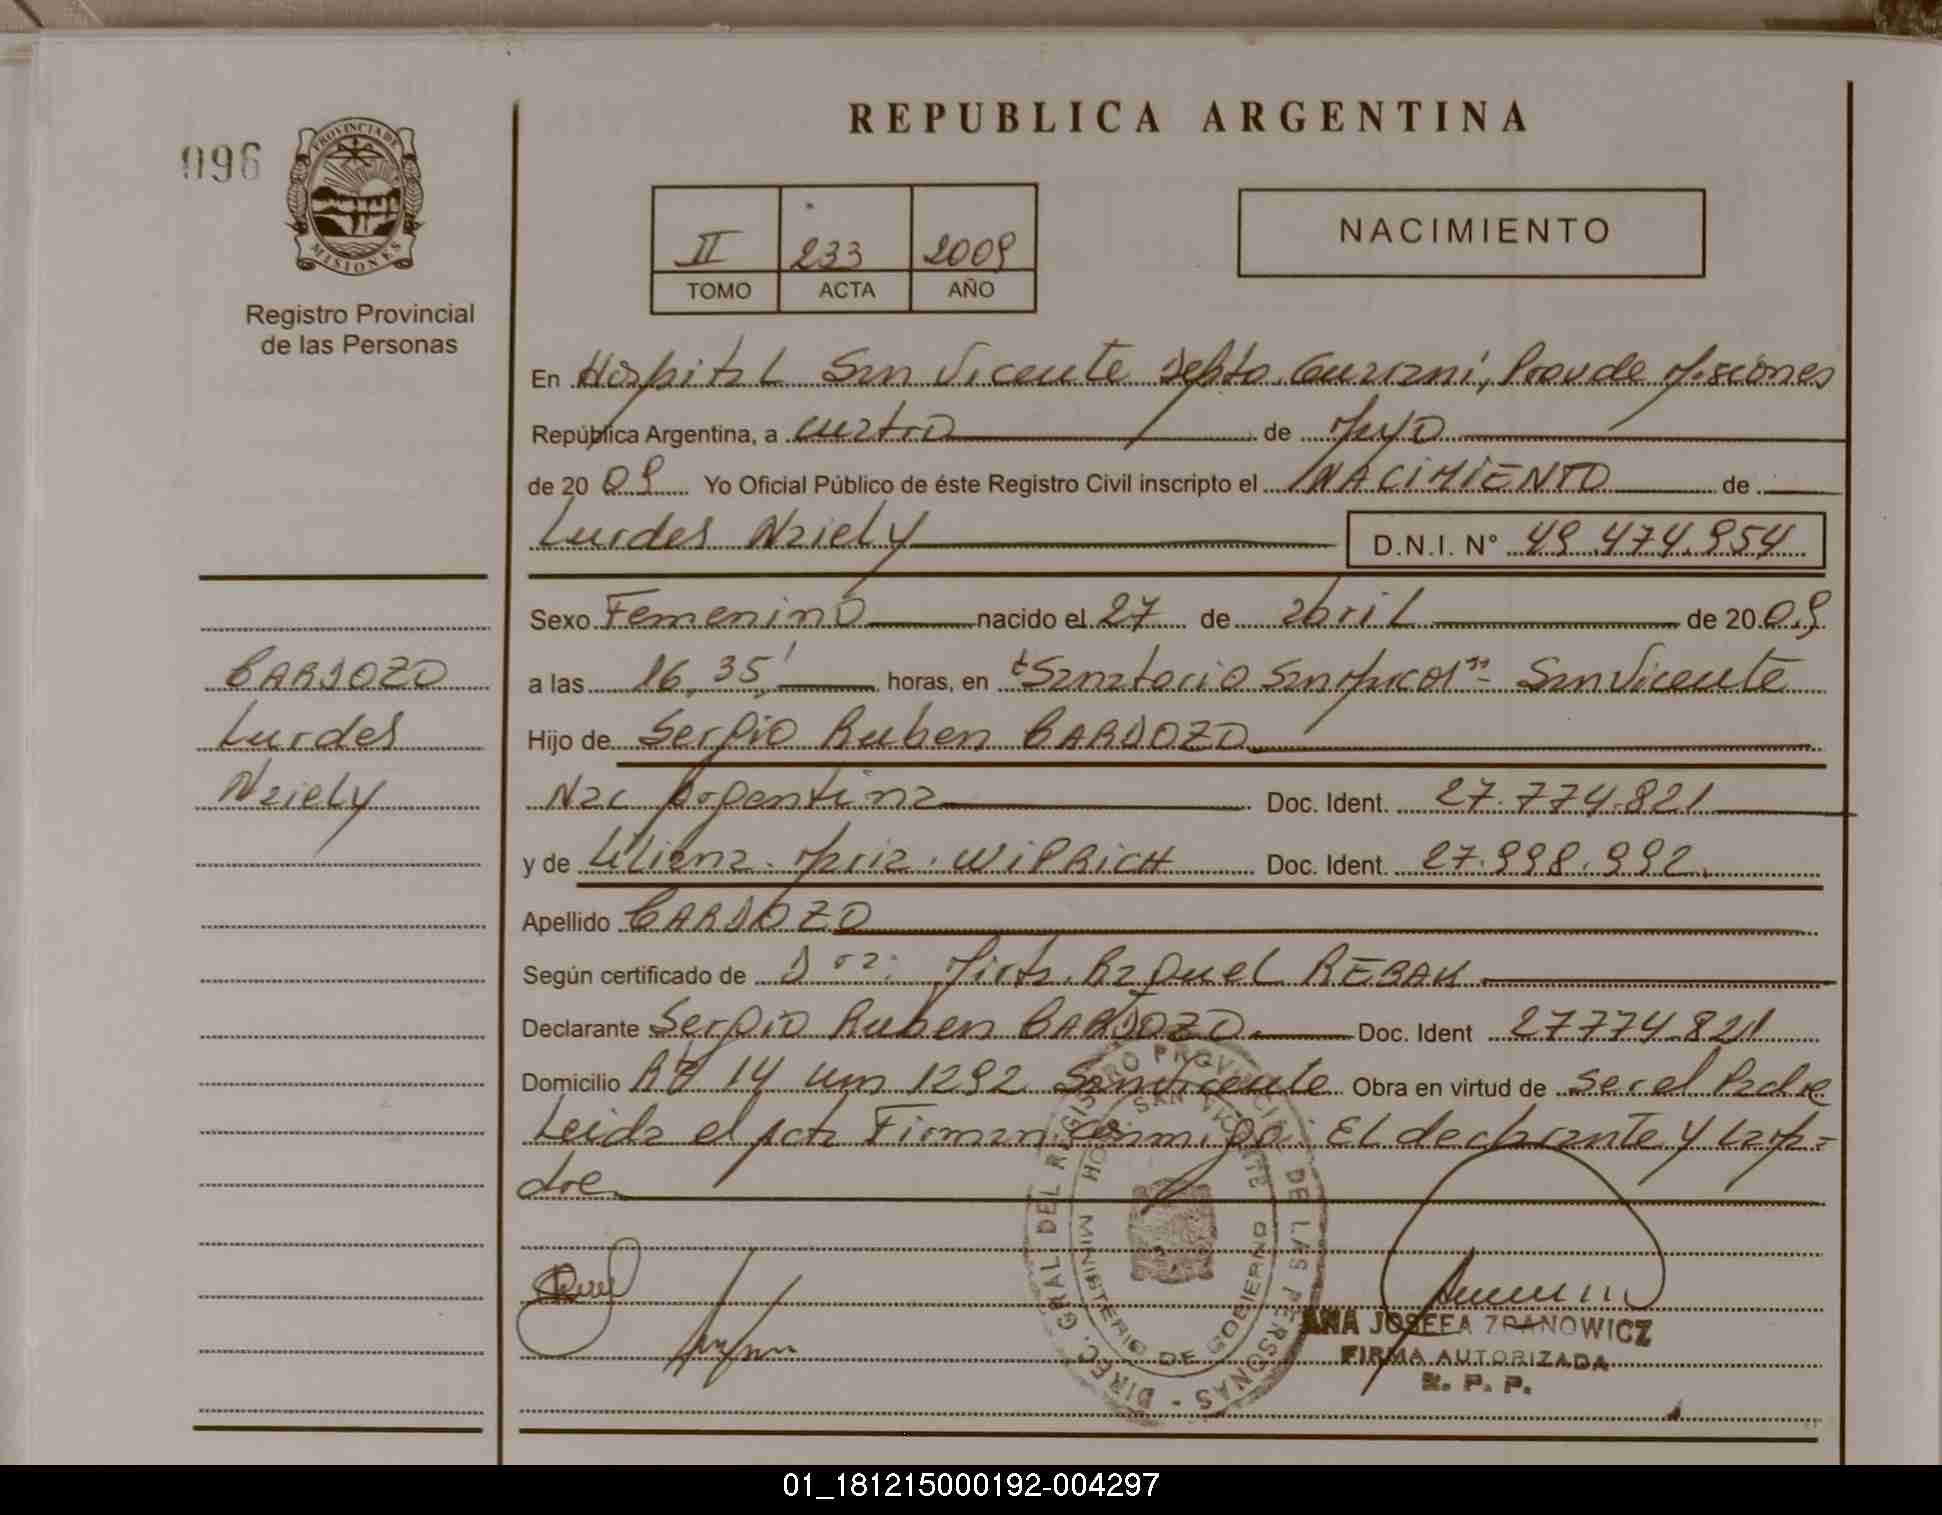 REPUBLICA ARGENTINA
096
PROVINCIA DE
MISIONES
Registro Provincial
de las Personas
II 233 2009
TOMO ACTA AÑO
NACIMIENTO
En Hospital San Vicente Depto. Guaraní, Prov de Misiones
República Argentina, a cuatro de Mayo
de 2009 Yo Oficial Público de éste Registro Civil inscripto el NACIMIENTO de
Lurdes Naiely D.N.I. N° 49.474.954
Sexo Femenino nacido el 27 de abril de 2009
a las 16,35' horas, en "Sanatorio San Marcos" - San Vicente
Hijo de Sergio Ruben CARDOZO
Nac Argentina Doc. Ident. 27.774.821
y de Liliana Maria WIPRICH Doc. Ident. 27.998.992
Apellido CARDOZO
Según certificado de Dra: Mirta Raquel REBAK
Declarante Sergio Ruben CARDOZO Doc. Ident 27774.821
Domicilio 14 km 1292 San Vicente Obra en virtud de ser el Padre
Leida el acta Firman conmigo: El declarante y la ma=
dre
CARDOZO
Lurdes
Naiely
DIREC. GRAL DEL REGISTRO PROVINCIAL DE LAS PERSONAS
MINISTERIO DE GOBIERNO
SAN VICENTE
ANA JOSEFA ZDANOWICZ
FIRMA AUTORIZADA
R. P. P.
01_181215000192-004297